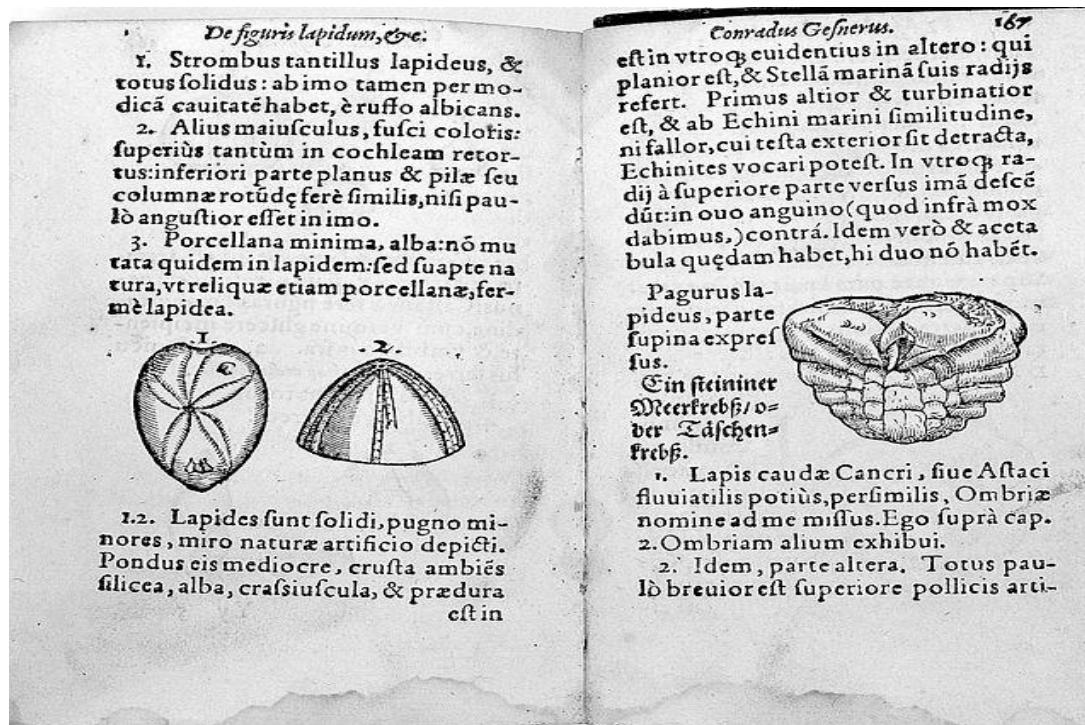 De figuris lapidum, &c.
1. Strombus tantillus lapideus, &
totus solidus: ab imo tamen per mo-
dicã cauitatẽ habet, è ruffo albicans.
2. Alius maiusculus, fusci coloris:
superiùs tantùm in cochleam retor-
tus: inferiori parte planus & pilæ seu
columnæ rotũdę ferè similis, nisi pau-
lò angustior esset in imo.
3. Porcellana minima, alba: nõ mu
tata quidem in lapidem: sed suapte na
tura, vt reliquæ etiam porcellanæ, fer-
mè lapidea.
.1.
.2.
1.2. Lapides sunt solidi, pugno mi-
nores, miro naturæ artificio depicti.
Pondus eis mediocre, crusta ambiẽs
silicea, alba, crassiuscula, & prædura
est in
Conradus Gesnerus. 167
est in vtroq; euidentius in altero: qui
planior est, & Stellã marinã suis radijs
refert. Primus altior & turbinatior
est, & ab Echini marini similitudine,
ni fallor, cui testa exterior sit detracta,
Echinites vocari potest. In vtroq; ra-
dij à superiore parte versus imã descẽ
dũt: in ouo anguino (quod infrà mox
dabimus,) contrá. Idem verò & aceta
bula quędam habet, hi duo nõ habẽt.
Pagurus la-
pideus, parte
supina expres
sus.
Ein steininer
Meerkrebß/ o-
der Täschen-
krebß.
1. Lapis caudæ Cancri, siue Astaci
fluuiatilis potiùs, persimilis, Ombriæ
nomine ad me missus. Ego suprà cap.
2. Ombriam alium exhibui.
2. Idem, parte altera. Totus pau-
lò breuior est superiore pollicis arti-